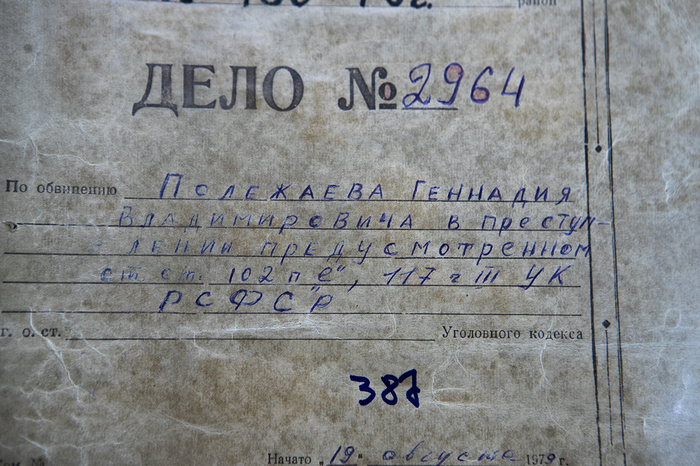 район
ДЕЛО № 2964
По обвинению Полежаева Геннадия
Владимировича в преступ-
лении предусмотренном
ст.ст. 102 п "е", 117 ч III УК
РСФСР
г. о. ст. Уголовного кодекса
387
Начато "19" августа 1979 г.